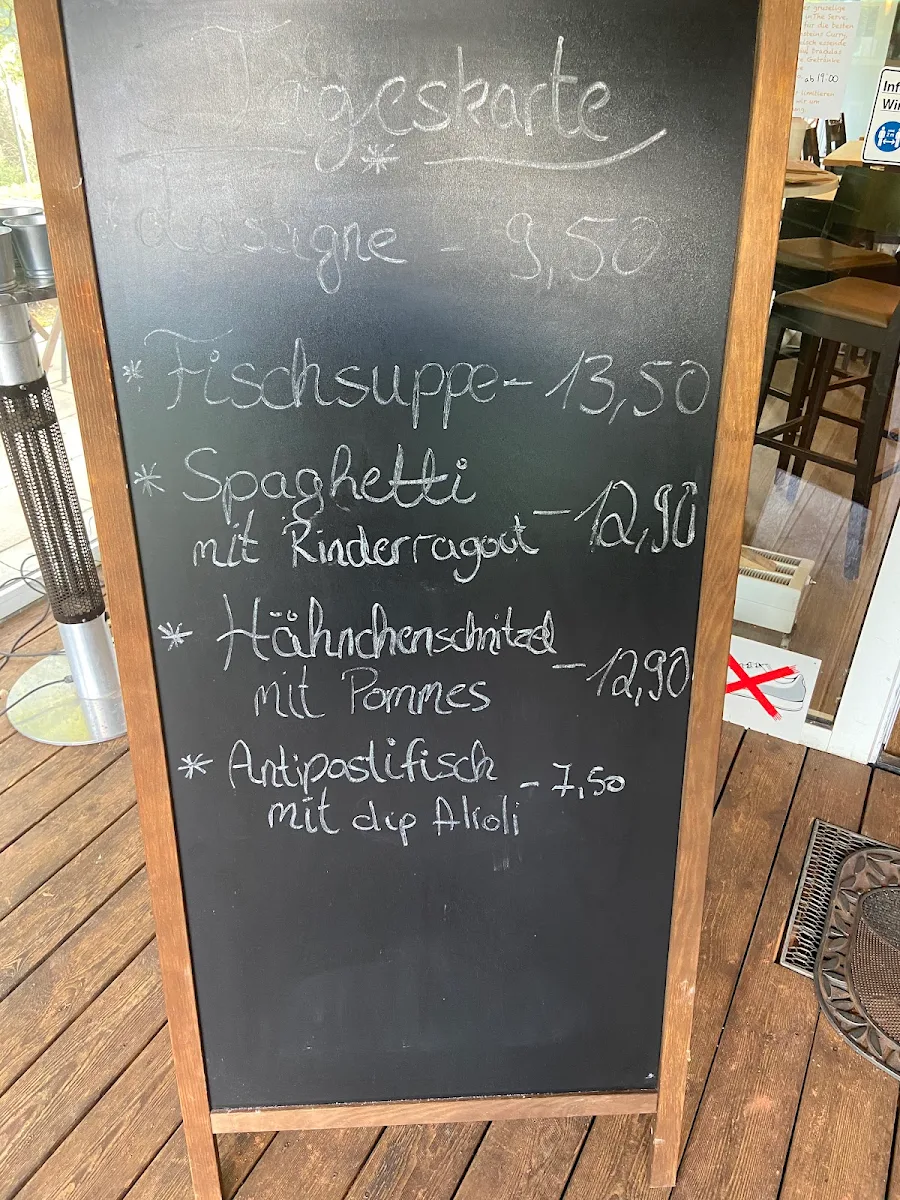 Tageskarte
*
Lasagne - 9,50
* Fischsuppe - 13,50
* Spaghetti
mit Rinderragout - 12,90
* Hähnchenschnitzel
mit Pommes - 12,90
* Antipastifisch
mit dip Alioli - 7,50
ab 19.00
Inf
Wi